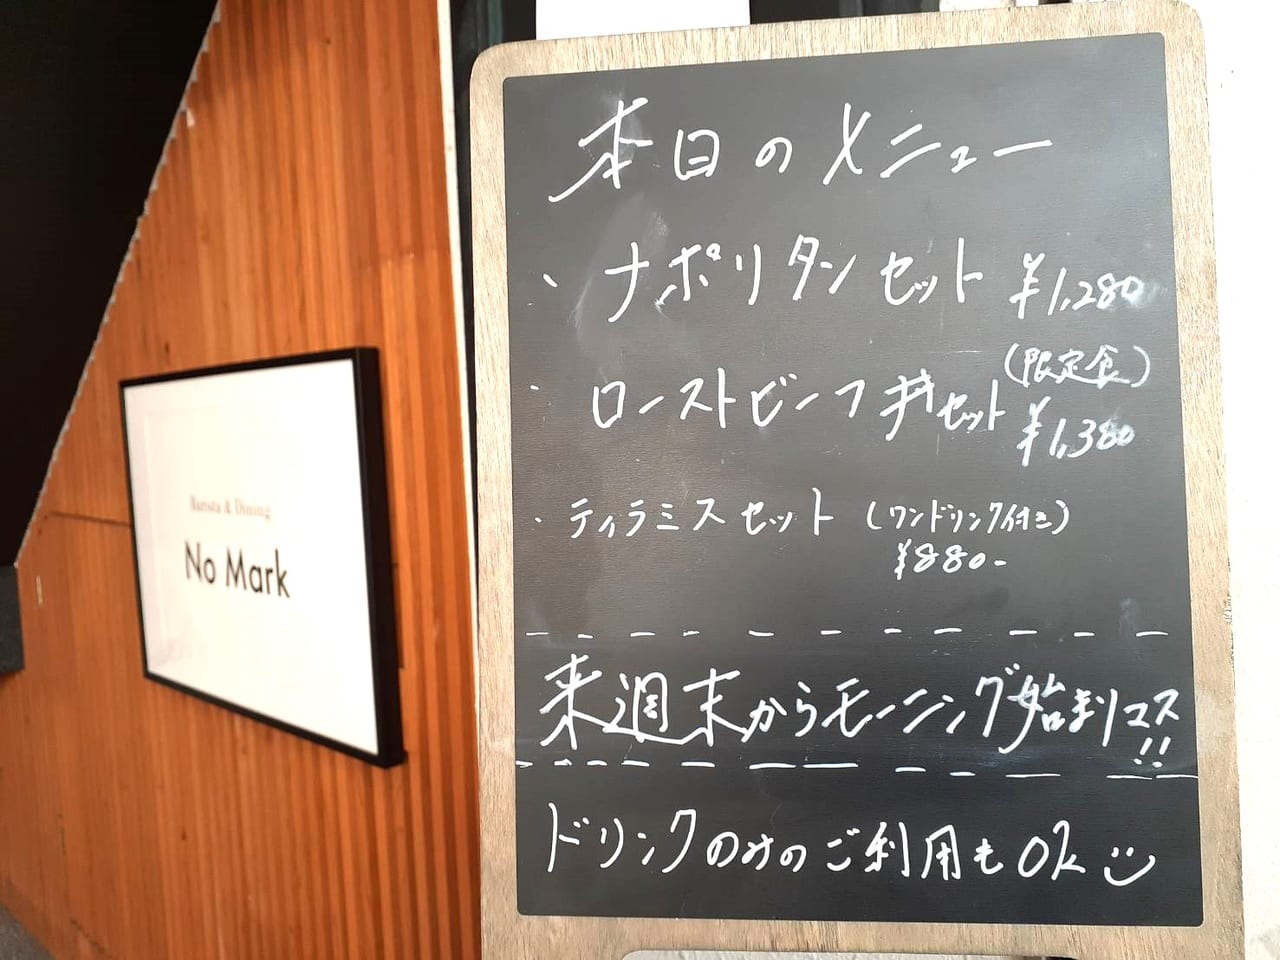 Barista & Dining
No Mark
本日のメニュー
、ナポリタンセット ¥1,280
・ローストビーフ丼セット (限定食) ¥1,380
・ティラミスセット (ワンドリンク付き)
¥880-
来週末からモーニング始まりマス!!
ドリンクのみのご利用もOK